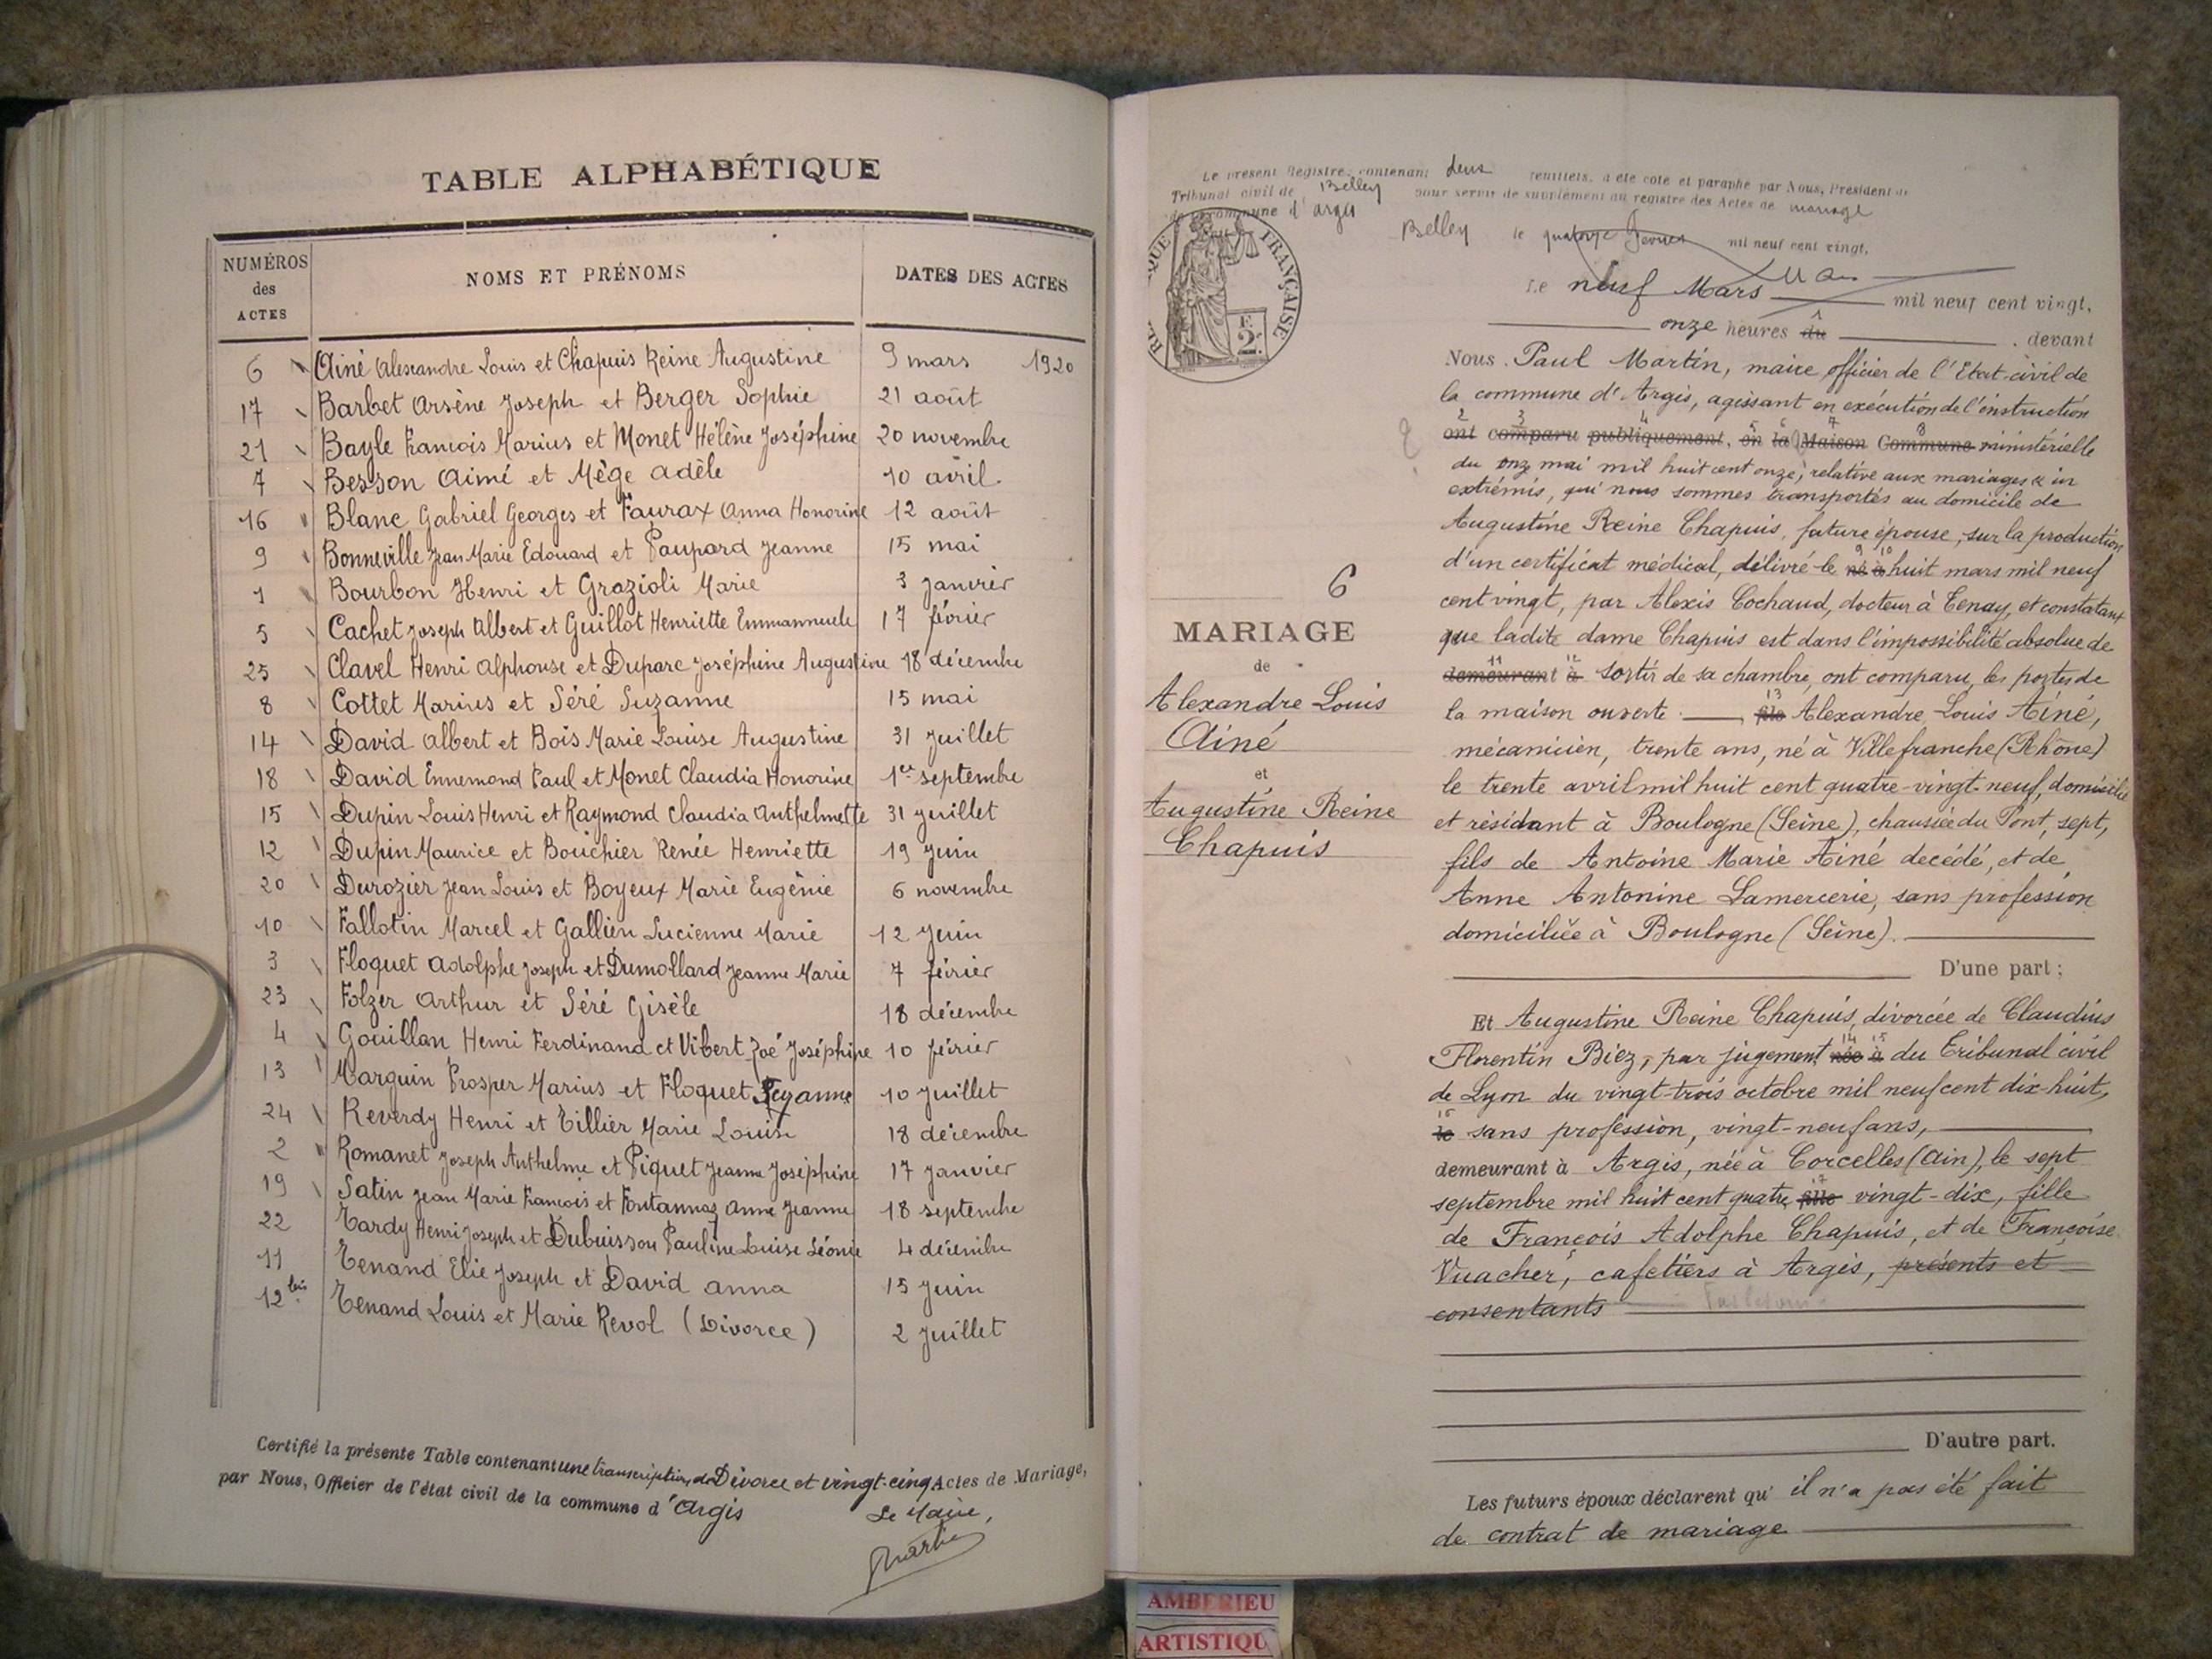 TABLE ALPHABÉTIQUE
NUMÉROS des ACTES
NOMS ET PRÉNOMS
DATES DES ACTES
6 Ainé Alexandre Louis et Chapuis Reine Augustine 9 mars 1920
17 Barbet Arsène Joseph et Berger Sophie 21 août
21 Bayle François Marius et Monet Hélène Joséphine 20 novembre
7 Besson Aimé et Mège Adèle 10 avril
16 Blanc Gabriel Georges et Faurax Anna Honorine 12 août
9 Bonneville Jean Marie Edouard et Paupard Jeanne 15 mai
1 Bourbon Henri et Grazioli Marie 3 janvier
5 Cachet Joseph Albert et Guillot Henriette Emmannuele 17 février
25 Clavel Henri Alphonse et Duparc Joséphine Augustine 18 décembre
8 Cottet Marius et Séré Suzanne 15 mai
14 David Albert et Bois Marie Louise Augustine 31 juillet
18 David Ennemond Paul et Monet Claudia Honorine 1er septembre
15 Dupin Louis Henri et Raymond Claudia Anthelmette 31 juillet
12 Dupin Maurice et Bouchier Renée Henriette 19 juin
20 Durozier Jean Louis et Boyeux Marie Eugénie 6 novembre
10 Fallotin Marcel et Gallien Lucienne Marie 12 juin
3 Floquet Adolphe Joseph et Dumollard Jeanne Marie 7 février
23 Folzer Arthur et Séré Gisèle 18 décembre
4 Gouillan Henri Ferdinand et Vibert Zoé Joséphine 10 février
13 Marguin Prosper Marius et Floquet 10 juillet
24 Reverdy Henri et Tillier Marie Louise 18 décembre
2 Romanet Joseph Anthelme et Piquet Jeanne Joséphine 17 janvier
19 Satin Jean Marie François et Fontannaz Anne Jeanne 18 septembre
22 Tardy Henri Joseph et Dubuisson Pauline Louise Léonie 4 décembre
11 Tenand Elie Joseph et David Anna 15 juin
12 bis Tenand Louis et Marie Revol (Divorce) 2 juillet
Certifié la présente Table contenant une transcription de Divorce et vingt-cinq Actes de Mariage,
par Nous, Officier de l'état civil de la commune d'Argis
Le Maire,
Martin
Le présent Registre, contenant deux feuillets, a été coté et paraphé par Nous, Président du
Tribunal civil de Belley pour servir de supplément au registre des Actes de mariage
de la commune d'Argis
Belley le quatorze mil neuf cent vingt,
RÉPUBLIQUE FRANÇAISE
2 F
6
MARIAGE
de
Alexandre Louis
Ainé
et
Augustine Reine
Chapuis
Le neuf Mars mil neuf cent vingt,
onze heures du , devant
Nous, Paul Martin, maire officier de l'Etat-civil de
la commune d'Argis, agissant en exécution de l'instruction
2 3 4 5 6 7 8
ont comparu publiquement, en la Maison Commune ministérielle
du onze mai mil huit cent onze, relative aux mariages « in
extrémis, qui nous sommes transportés au domicile de
Augustine Reine Chapuis, future épouse, sur la production
9 10
d'un certificat médical, délivré le né à huit mars mil neuf
cent vingt, par Alexis Cochaud, docteur à Tenay, et constatant
que ladite dame Chapuis est dans l'impossibilité absolue de
11 12
demeurant à sortir de sa chambre, ont comparu, les portes de
13
la maison ouverte fils Alexandre Louis Ainé,
mécanicien, trente ans, né à Villefranche (Rhône)
le trente avril mil huit cent quatre-vingt-neuf, domicilié
et résidant à Boulogne (Seine), chaussée du Pont, sept,
fils de Antoine Marie Ainé decédé, et de
Anne Antonine Lamercerie, sans profession
domiciliée à Boulogne (Seine).
D'une part;
Et Augustine Reine Chapuis, divorcée de Claudius
14 15
Florentin Biez, par jugement née à du Tribunal civil
de Lyon du vingt-trois octobre mil neuf cent dix-huit,
16
le sans profession, vingt-neuf ans,
demeurant à Argis, née à Corcelles (Ain), le sept
17
septembre mil huit cent quatre fille vingt-dix, fille
de François Adolphe Chapuis, et de Françoise
Vuacher, cafetiers à Argis, présents et
consentants
D'autre part.
Les futurs époux déclarent qu'il n'a pas été fait
de contrat de mariage
AMBERIEU
ARTISTIQU